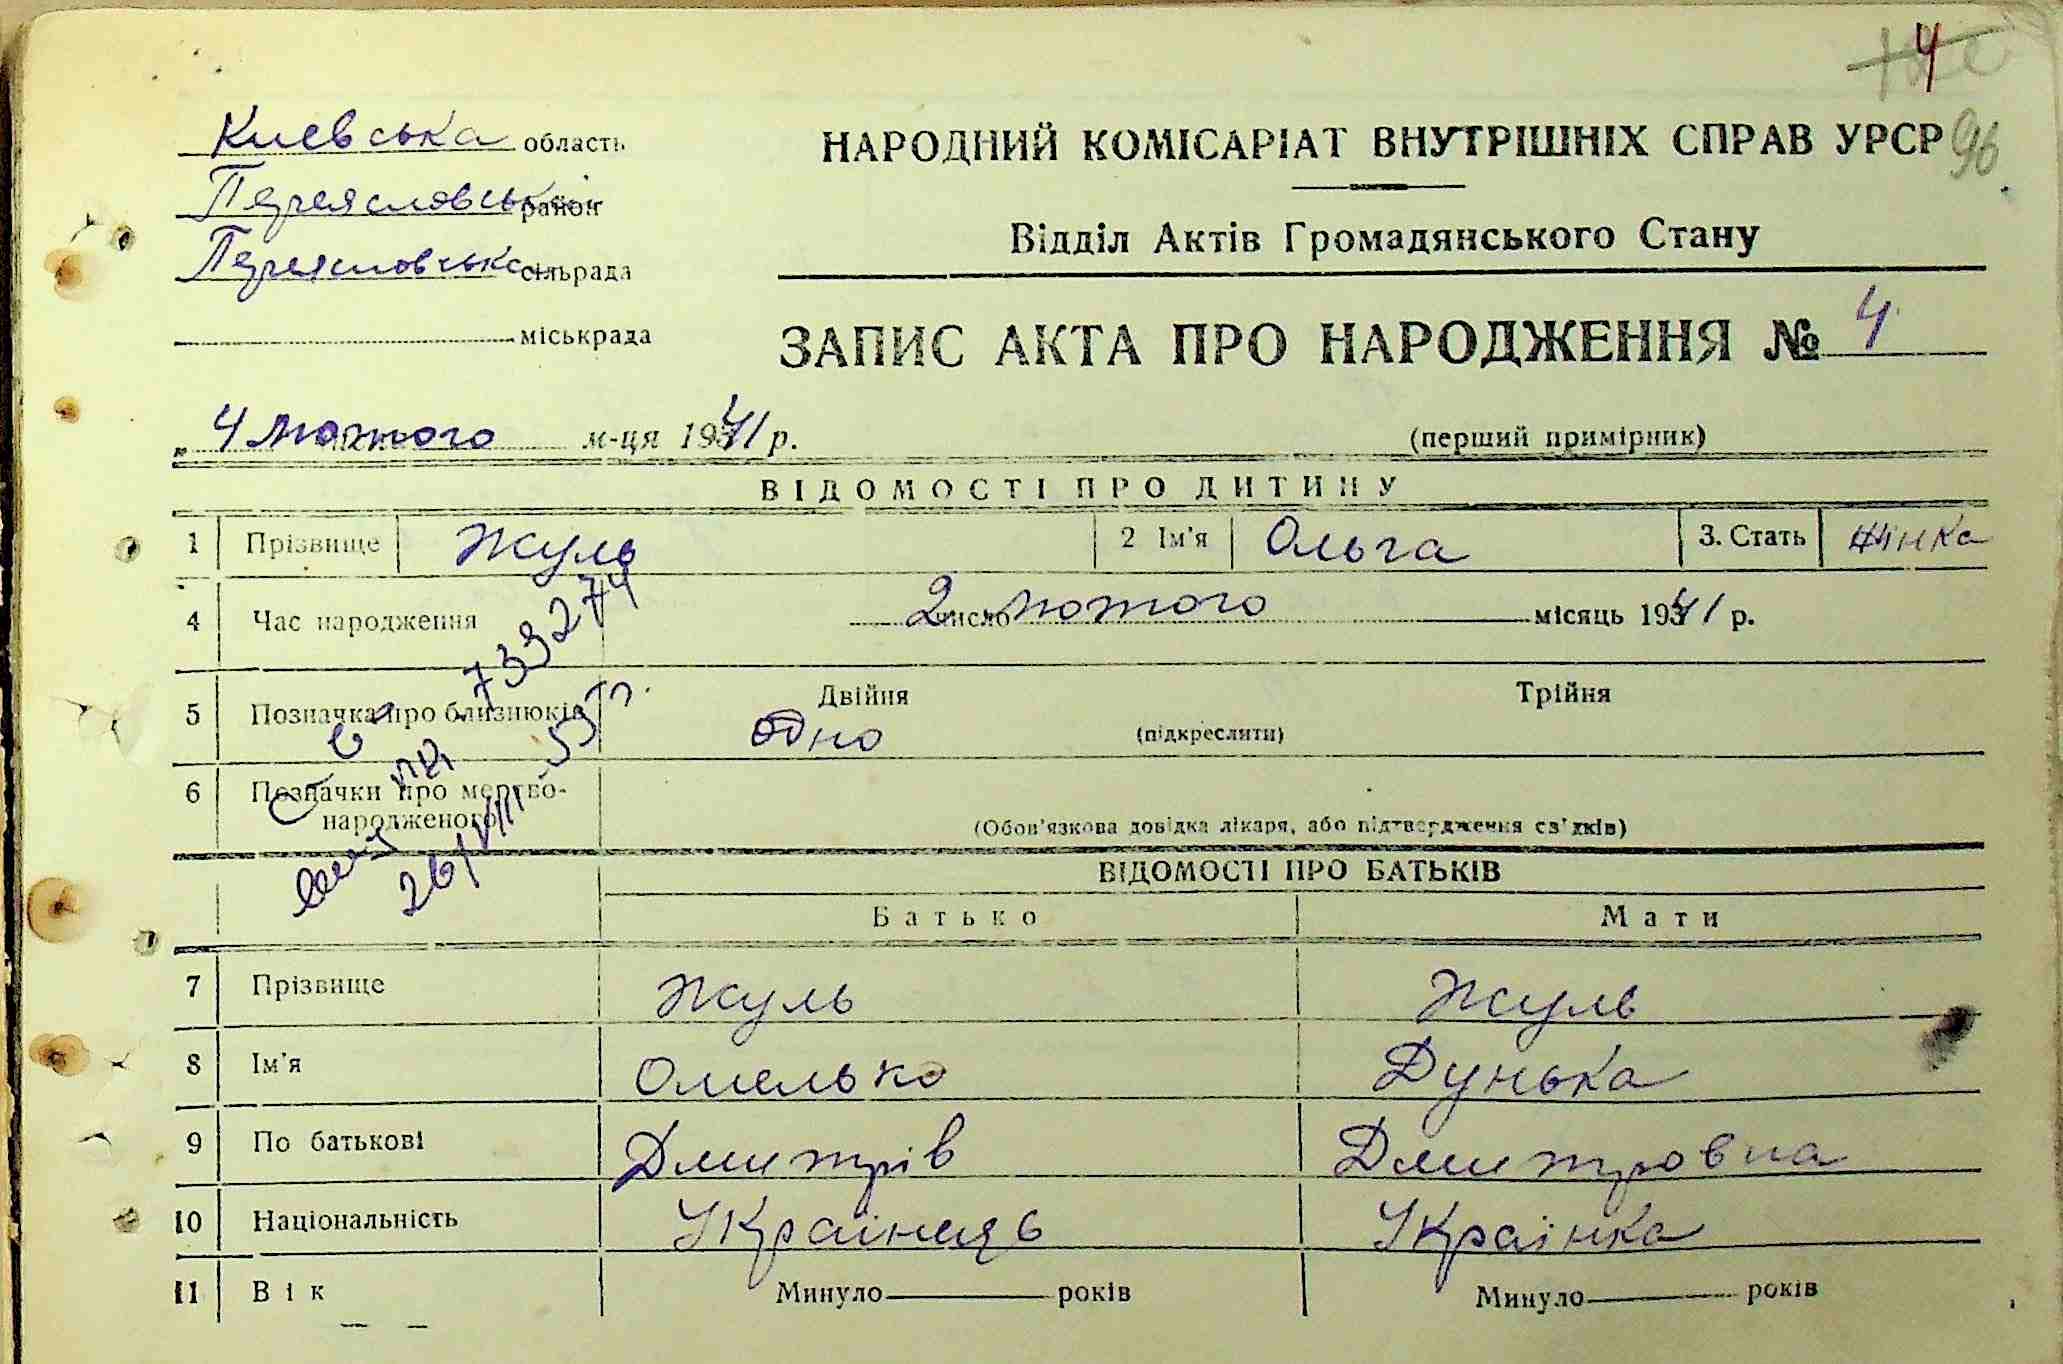 4
96
Киевська область
НАРОДНИЙ КОМІСАРІАТ ВНУТРІШНІХ СПРАВ УРСР
Переясловський район
Відділ Актів Громадянського Стану
Переясловська сільрада
міськрада
ЗАПИС АКТА ПРО НАРОДЖЕННЯ № 4
„ 4 лютого м-ця 1941 р.
(перший примірник)
ВІДОМОСТІ ПРО ДИТИНУ
1 Прізвище Жуль 2 Ім'я Ольга 3. Стать жінка
4 Час народження 2 число лютого місяць 1941 р.
5 Позначка про близнюків Двійня Трійня
одно (підкреслити)
6 Позначки про мертво-
народженого (Обов'язкова довідка лікаря, або підтвердження св'дків)
733274
26/VIII-55 г.
ВІДОМОСТІ ПРО БАТЬКІВ
Батько Мати
7 Прізвище Жуль Жуль
8 Ім'я Омелько Дунька
9 По батькові Дмитрів Дмитровна
10 Національність Українець Українка
11 Вік Минуло років Минуло років